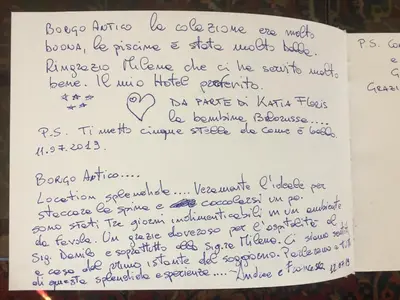 BORGO ANTICO la colazione era molto
buona, la piscina è stata molto bella.
Ringrazio Milena che ci ha servito molto
bene. Il mio Hotel preferito.
DA PARTE DI KATIA Floris
la bambina
P.S. Ti metto cinque stelle da come è bello.
11.07.2019.
P.S.
GRAZI
BORGO ANTICO....
Location splendida.... Veramente l'ideale per
staccare la spina e coccolarsi un po'.
sono stati Tre giorni indimenticabili in un ambiente
da favola. Un grazie doveroso per l'ospitalità al
Sig. Danilo e soprattutto alla Sig.ra Milena. Ci siamo sentiti
a casa dal primo istante del soggiorno.
di questa splendida esperienza.... Andrea e